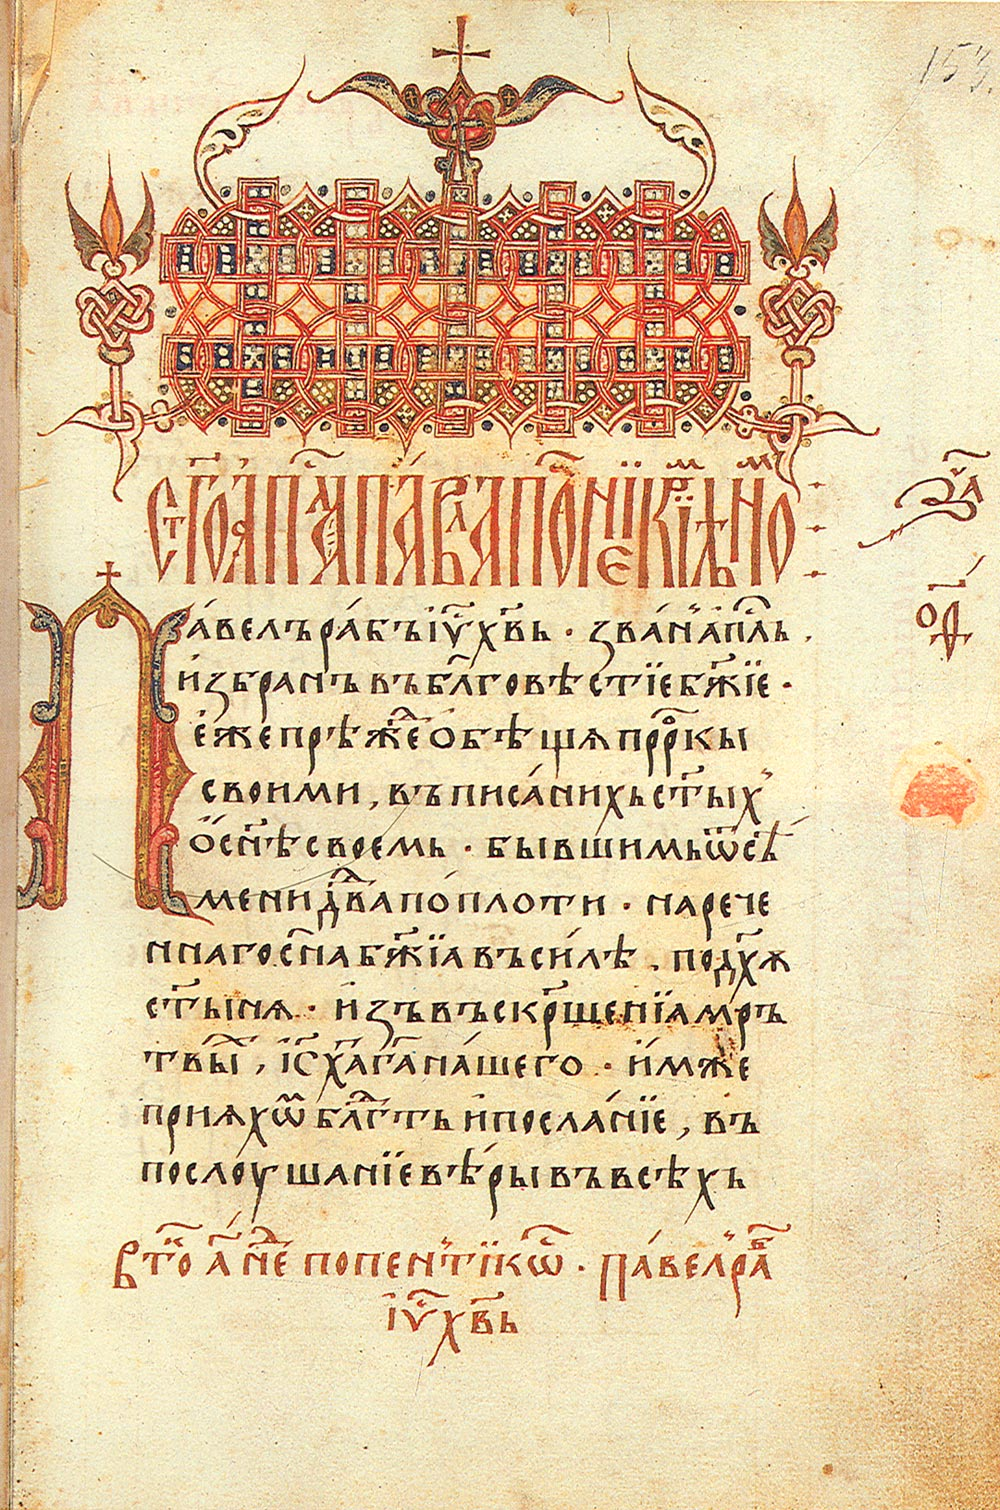 153.
Павелъ рабъ іү҃ хв҃ь · званⷩ҇ апⷭ҇лъ .
избранъ въ бл҃говѣстїе бж҃їе ·
еже прѣжⷣе обѣщѧ прⷪ҇ркы
своими , въ писаних ст҃ых
ѡ сн҃ѣ своемь · бывшимь ѿ сѣ
мени дв҃да по плоти · нарече
ннаго сн҃а бж҃їа въ силѣ . по дх҃ѫ
ст҃ынѧ · изъ въскрⷭ҇щенїа мръ
твыⷯ , іс҃ х҃а г҃а нашего · имже
прияхѡⷨ блгⷣть и посланїе , въ
послоушанїе вѣры въ всѣхъ
Втоⷪ҇ а҃ неⷣ по пентикѡⷭ · Павел раб
іү҃ хв҃ь